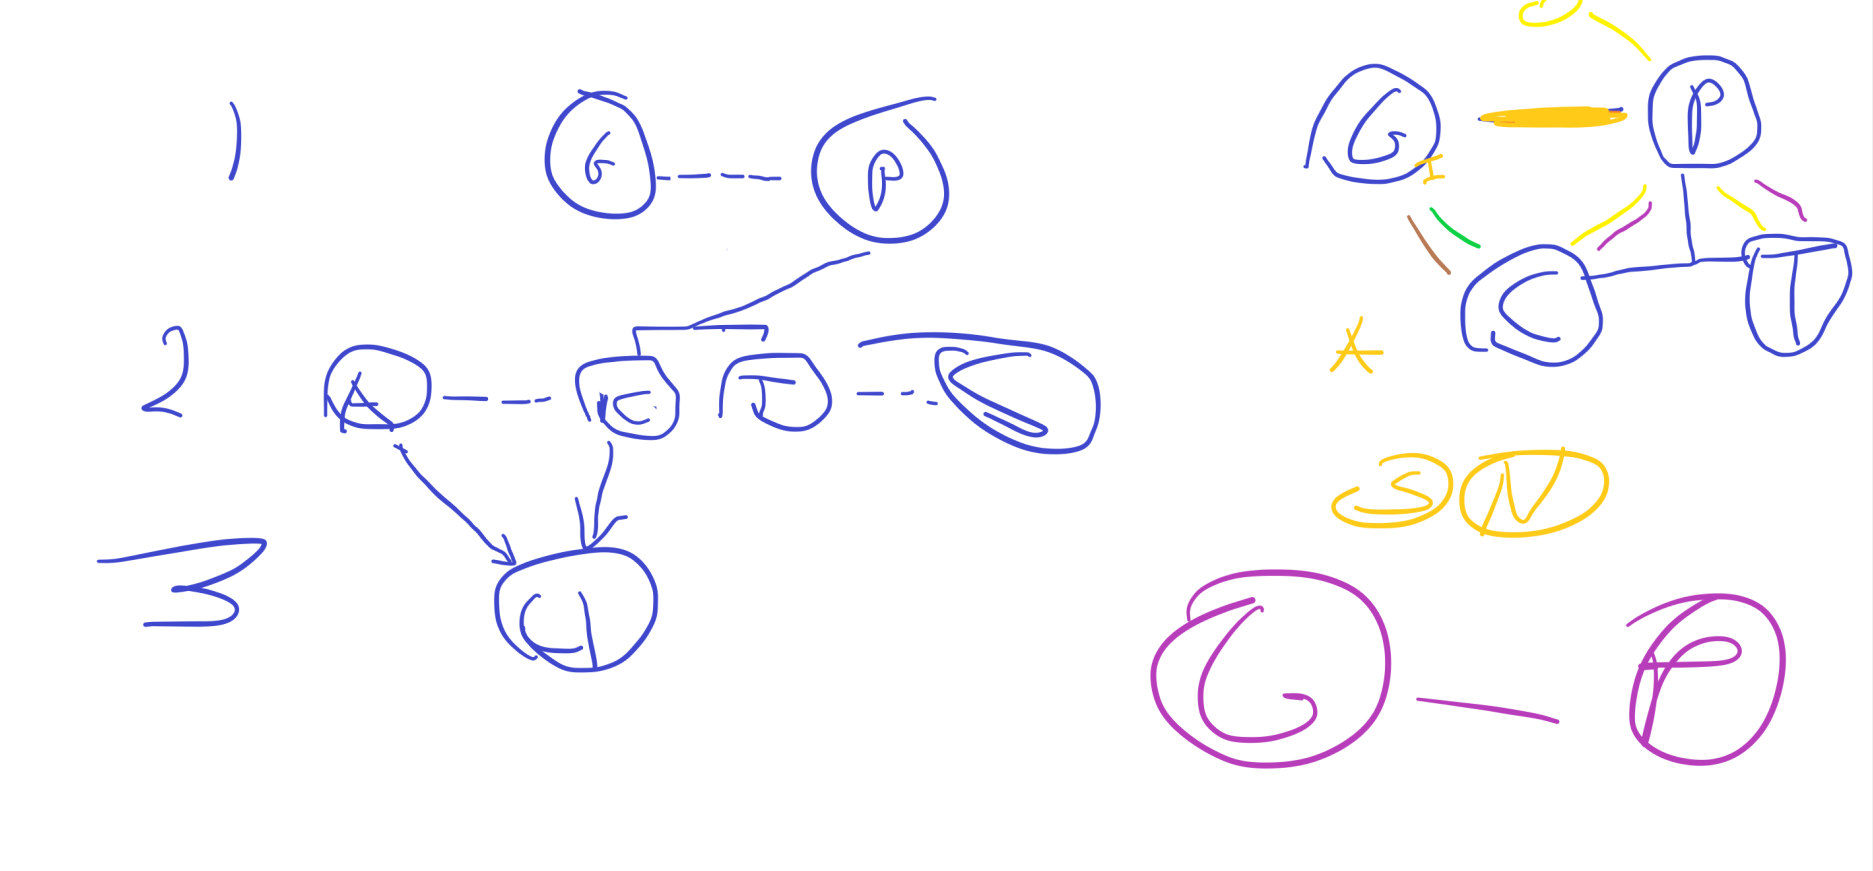 1 G P
2 A C T S
3 CJ
G P
I
C T
A
S N
G P